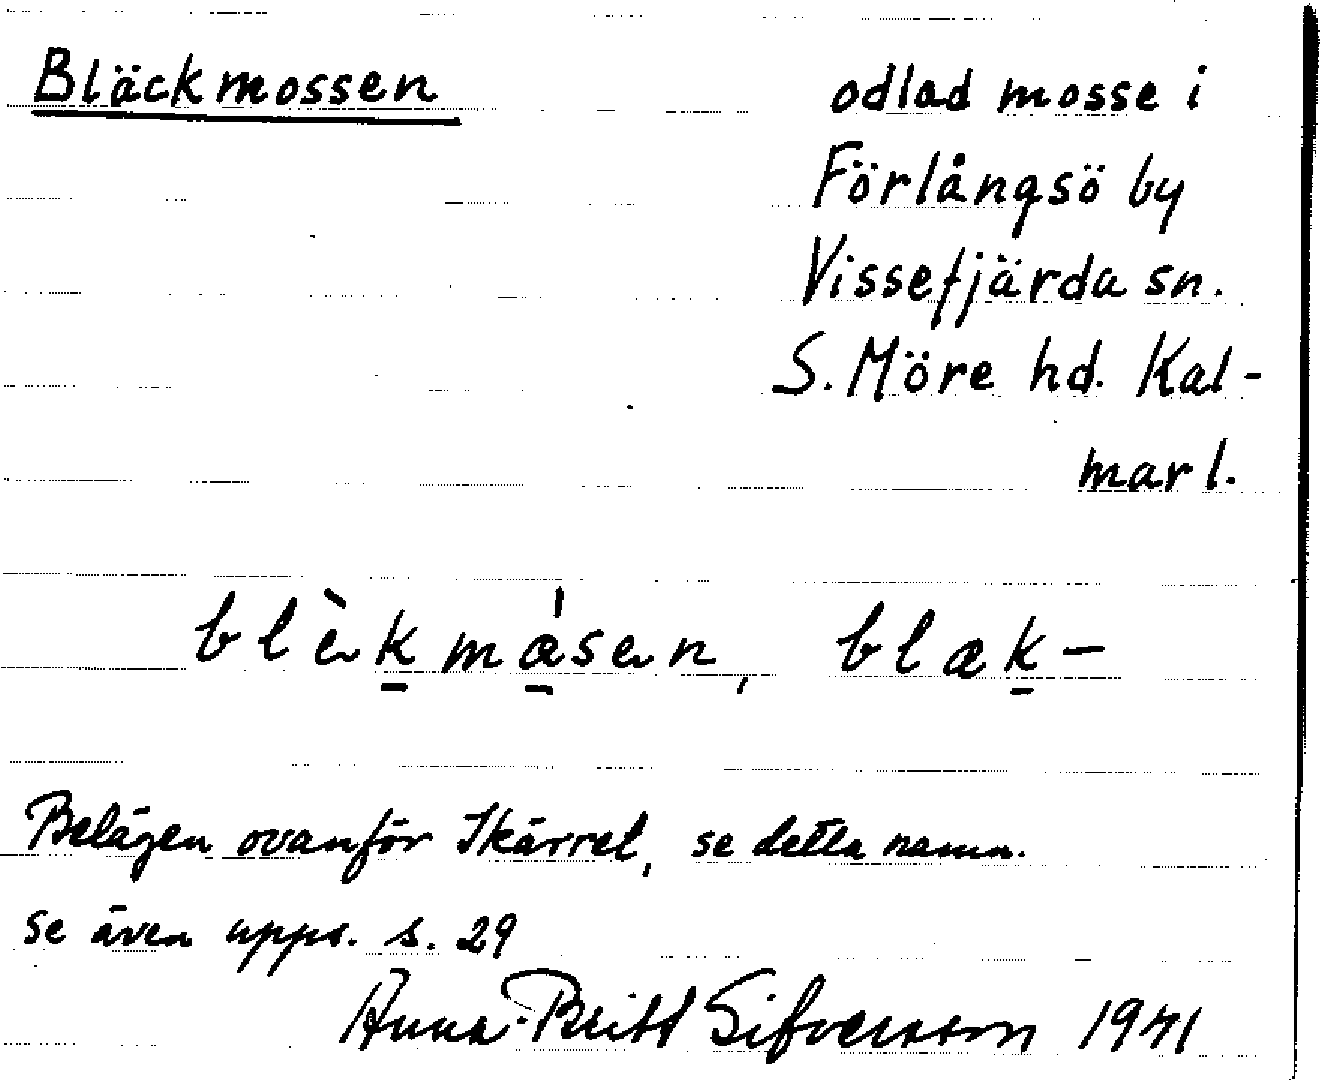 Bläckmossen
odlad mosse i
Förlångsö by
Vissefjärda sn.
S. Möre hd. Kal-
mar l.
blæ̀km
blæk-
Belägen ovanför
se detta namn.
se även upps. s. 29
Anna-Britt Sifversson 1941